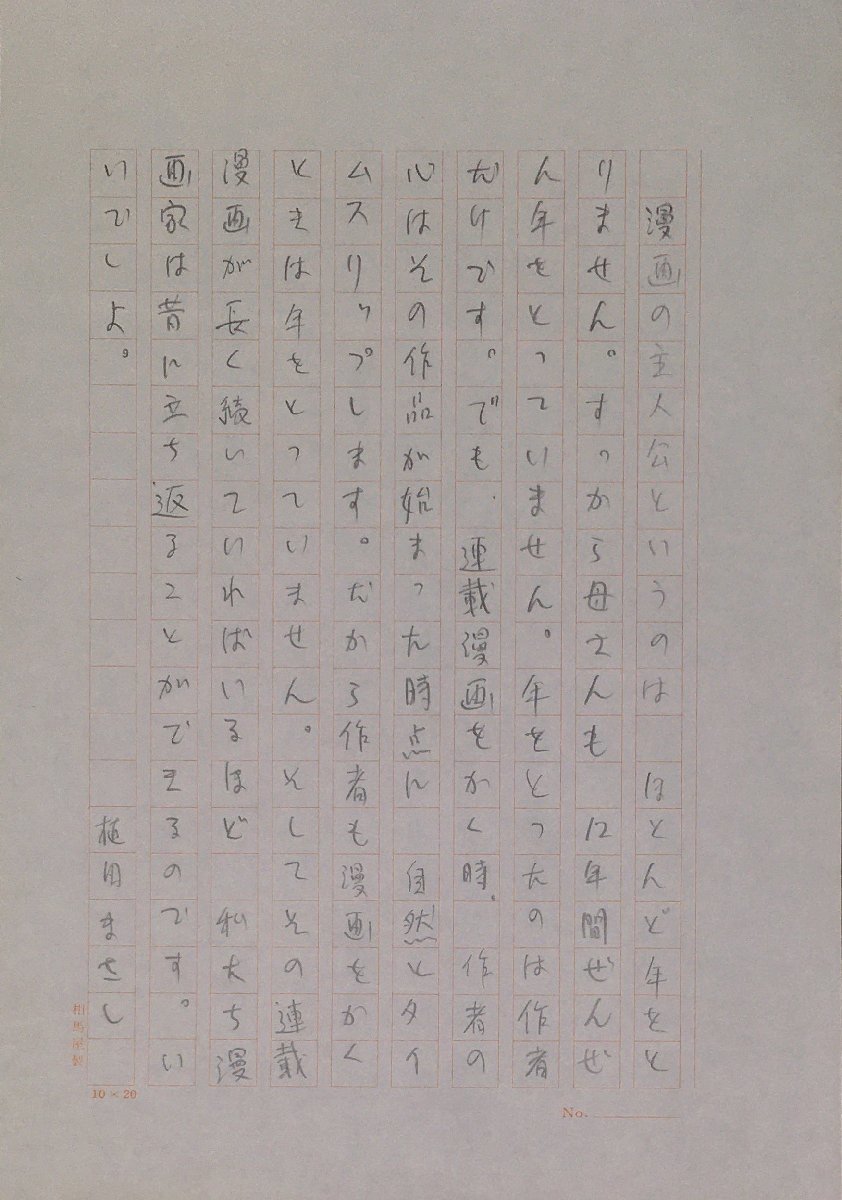 漫画の主人公というのは　ほとんど年をと
りません。すっから母さんも　12年間ぜんぜ
ん年をとっていません。年をとったのは作者
だけです。でも、連載漫画をかく時、作者の
心はその作品が始まった時点に　自然とタイ
ムスリップします。だから作者も漫画をかく
ときは年をとっていません。そしてその連載
漫画が長く続いていればいるほど　私たち漫
画家は昔に立ち返ることができるのです。い
いでしよ。　植田まさし
相馬屋製
10×20
No.